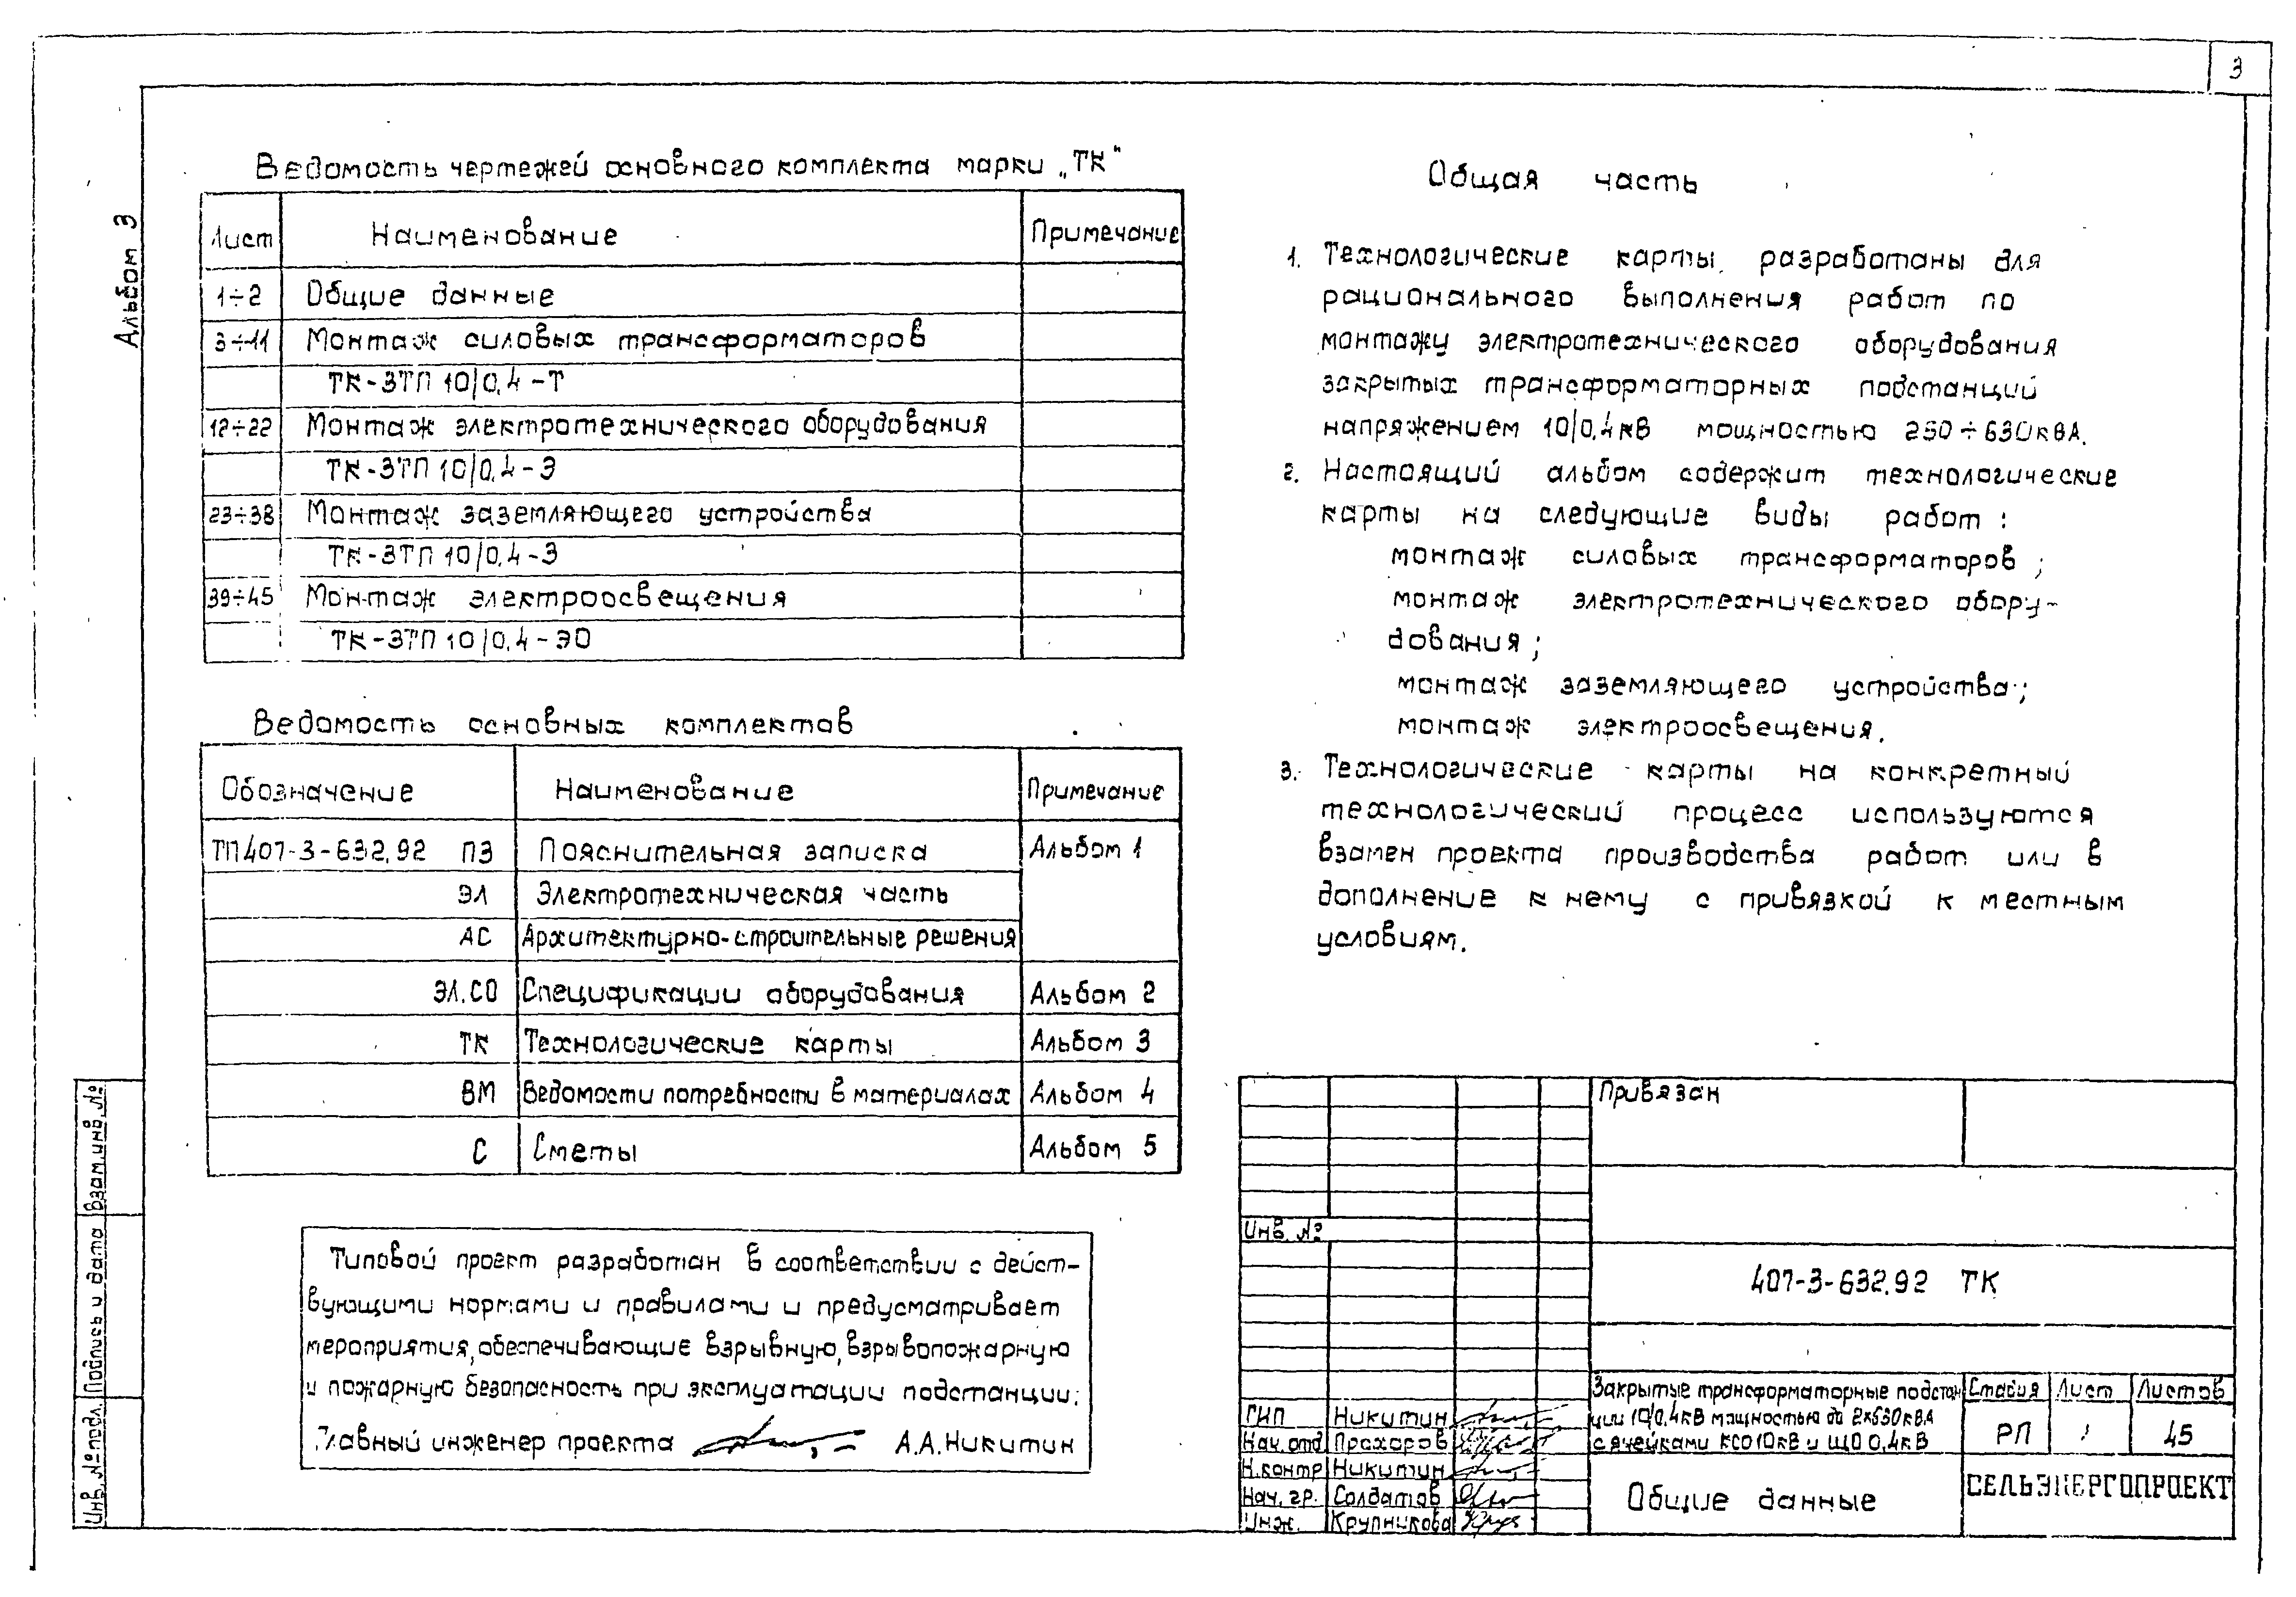 3
Альбом 3
Ведомость чертежей основного комплекта марки „ТК"
Лист Наименование Примечание
1÷2 Общие данные
3÷11 Монтаж силовых трансформаторов
ТК-ЗТП 10/0,4-Т
12÷22 Монтаж электротехнического оборудования
ТК-ЗТП 10/0,4-Э
23÷38 Монтаж заземляющего устройства
ТК-ЗТП 10/0,4-З
39÷45 Монтаж электроосвещения
ТК-ЗТП 10/0,4-ЭО
Ведомость основных комплектов
Обозначение Наименование Примечание
ТП407-3-632.92 ПЗ Пояснительная записка Альбом 1
ЭЛ Электротехническая часть
АС Архитектурно-строительные решения
ЭЛ.СО Спецификации оборудования Альбом 2
ТК Технологические карты Альбом 3
ВМ Ведомости потребности в материалах Альбом 4
С Сметы Альбом 5
Типовой проект разработан в соответствии с дейст-
вующими нормами и правилами и предусматривает
мероприятия, обеспечивающие взрывную, взрывопожарную
и пожарную безопасность при эксплуатации подстанции.
Главный инженер проекта А.А.Никитин
Общая часть
1. Технологические карты разработаны для
рационального выполнения работ по
монтажу электротехнического оборудования
закрытых трансформаторных подстанций
напряжением 10/0,4кВ мощностью 250÷630кВА.
2. Настоящий альбом содержит технологические
карты на следующие виды работ:
монтаж силовых трансформаторов;
монтаж электротехнического обору-
дования;
монтаж заземляющего устройства;
монтаж электроосвещения.
3. Технологические карты на конкретный
технологический процесс используются
взамен проекта производства работ или в
дополнение к нему с привязкой к местным
условиям.
Привязан
Инв. №
407-3-632.92 ТК
Закрытые трансформаторные подстан
ции 10/0,4кВ мощностью до 2х630кВА
с ячейками КСО10кВ и ЩО 0,4кВ
Стадия Лист Листов
РП 1 45
ГИП Никитин
Нач. отд Прохоров
Н.контр Никитин
Нач. гр. Солдатов
Инж. Крупникова
Общие данные
СЕЛЬЭНЕРГОПРОЕКТ
Инв.№ подл. Подпись и дата Взам.инв.№